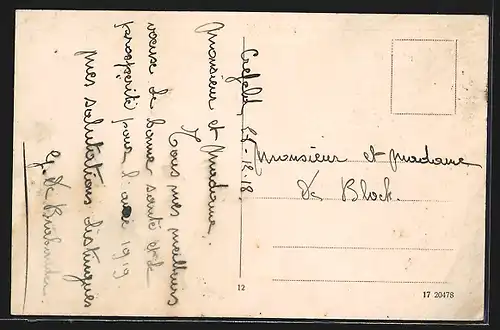 Crefeld, 27-12-18.
Monsieur et Madame.
Tous mes meilleurs
voeux de bonne santé et de
prospérité pour l'année 1919
mes salutations distingués
G. De Brabander
Monsieur et madame
De Block.
12
17 20478